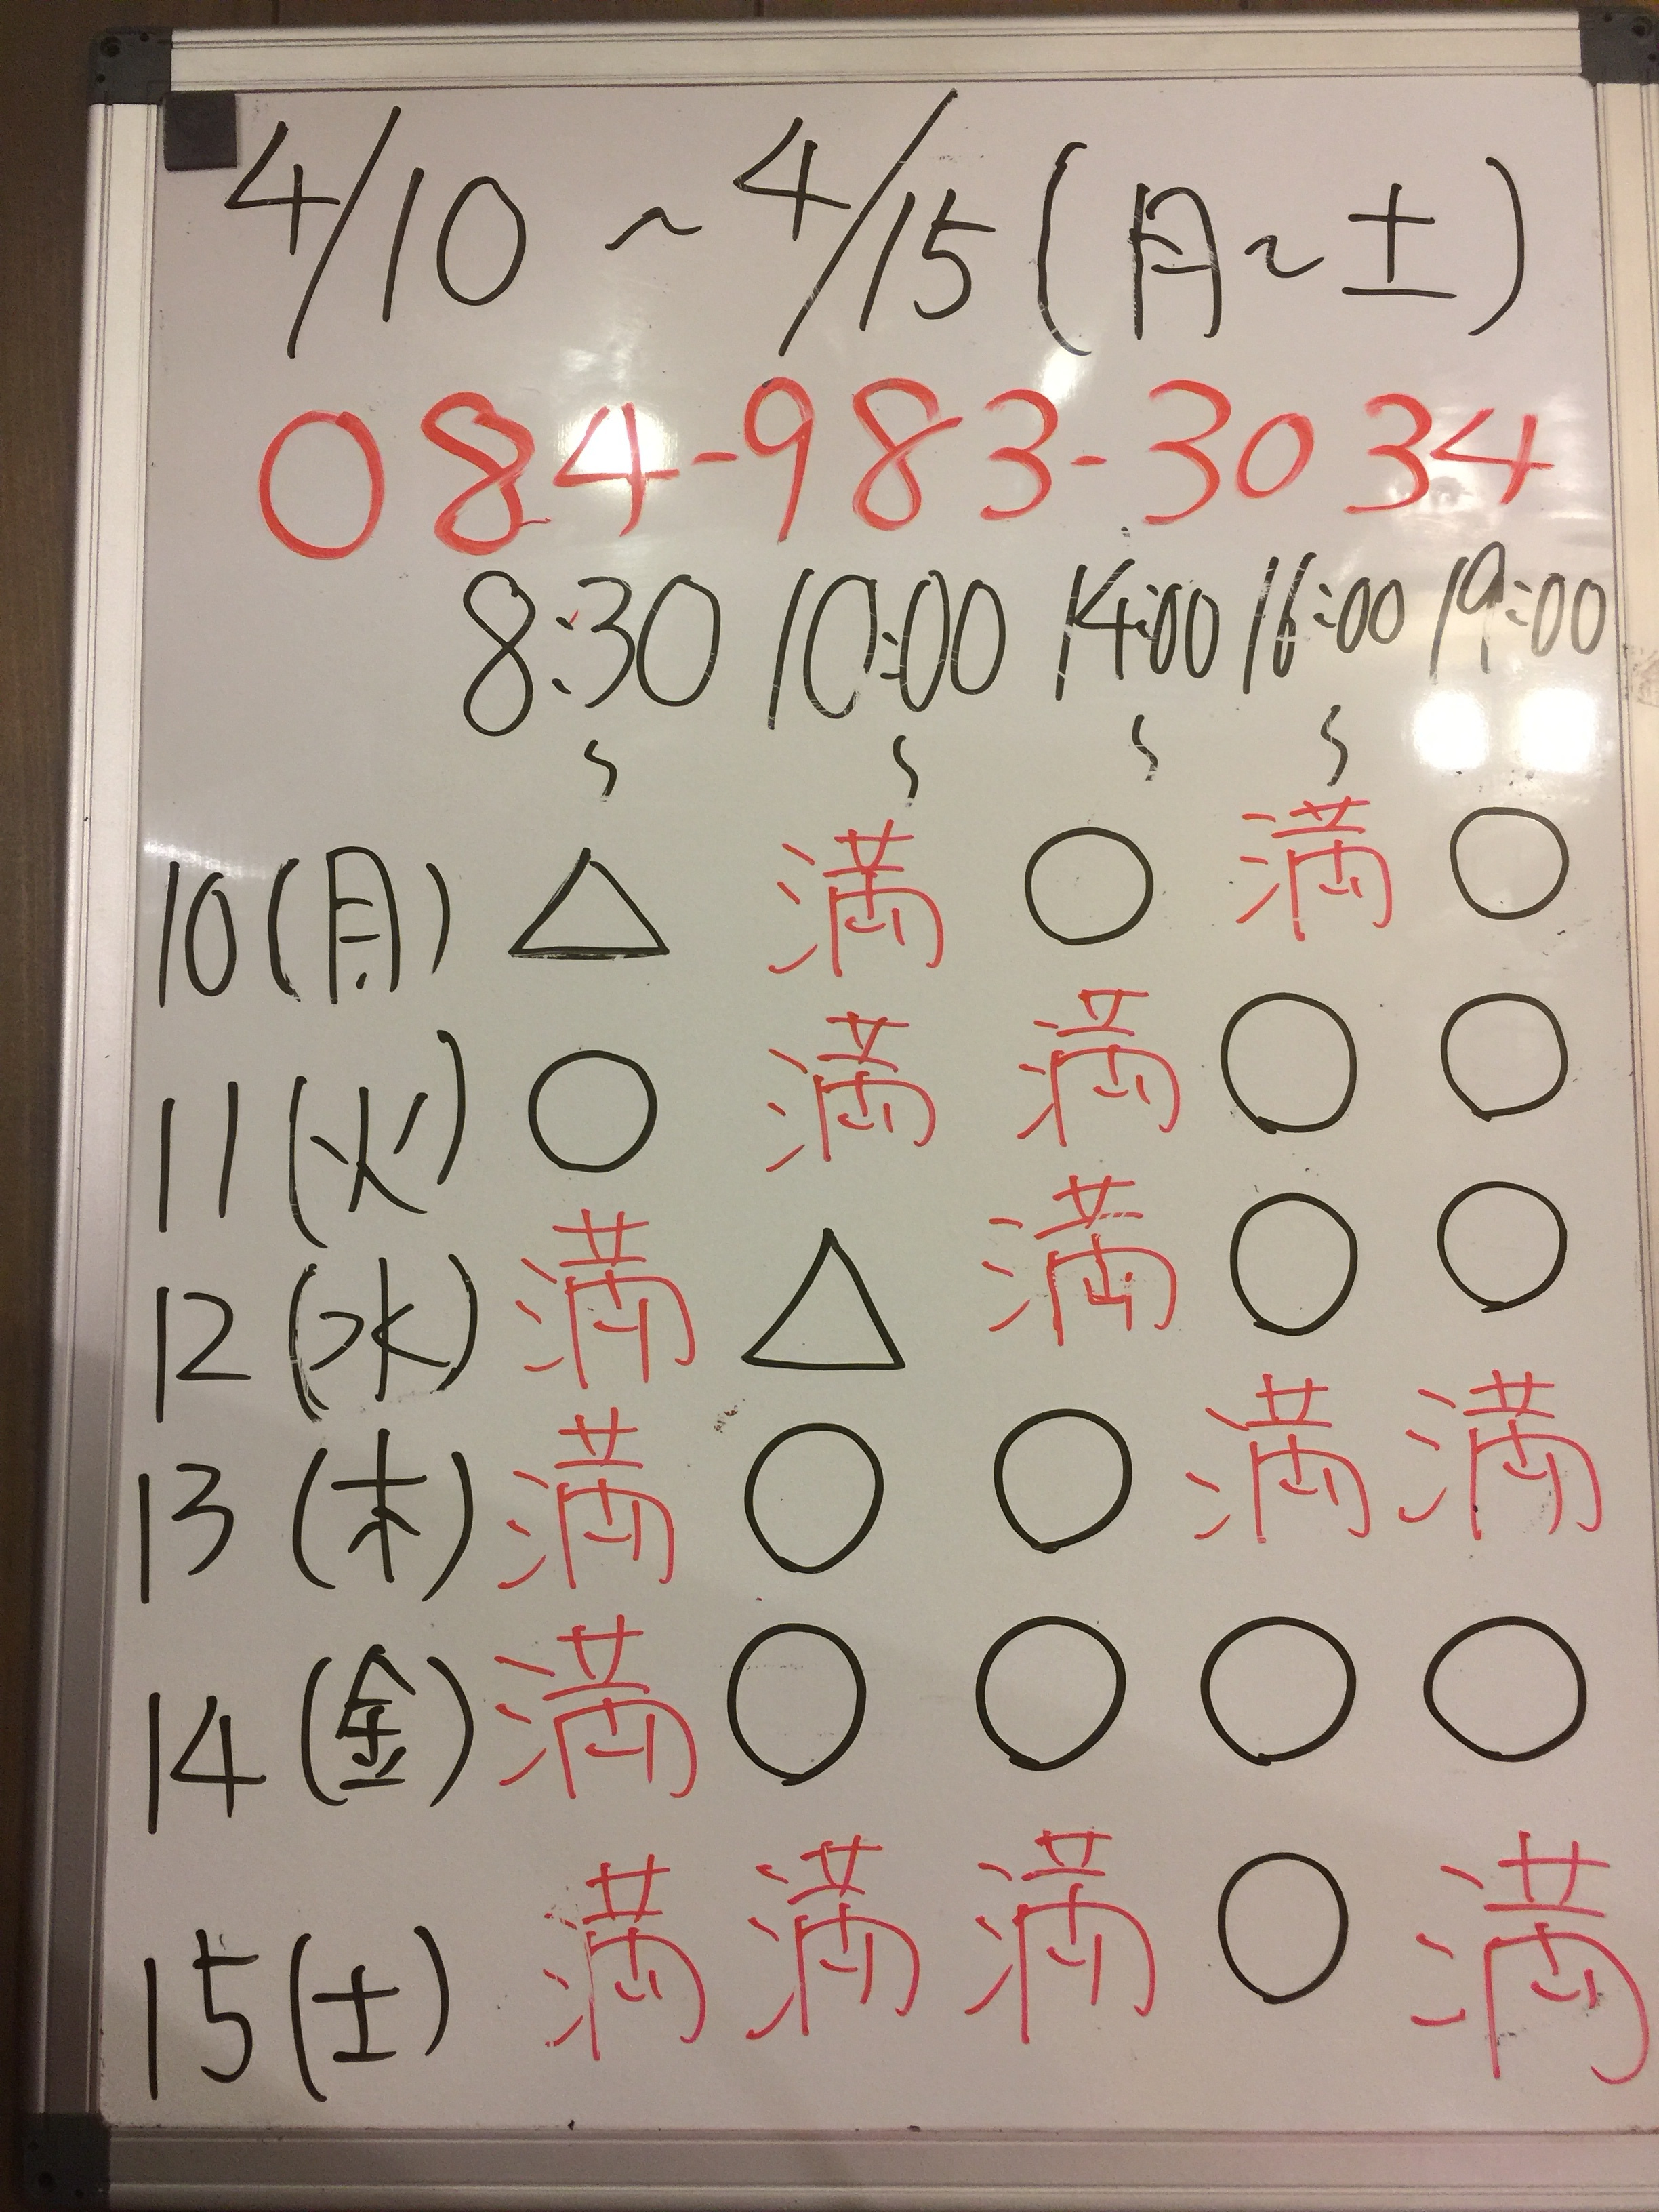 4/10 ~ 4/15 (月~土)
084-983-3034
8:30 10:00 14:00 16:00 19:00
~ ~ ~ ~
10(月) △ 満 ○ 満 ○
11(火) ○ 満 満 ○ ○
12(水) 満 △ 満 ○ ○
13(木) 満 ○ ○ 満 満
14(金) 満 ○ ○ ○ ○
15(土) 満 満 満 ○ 満